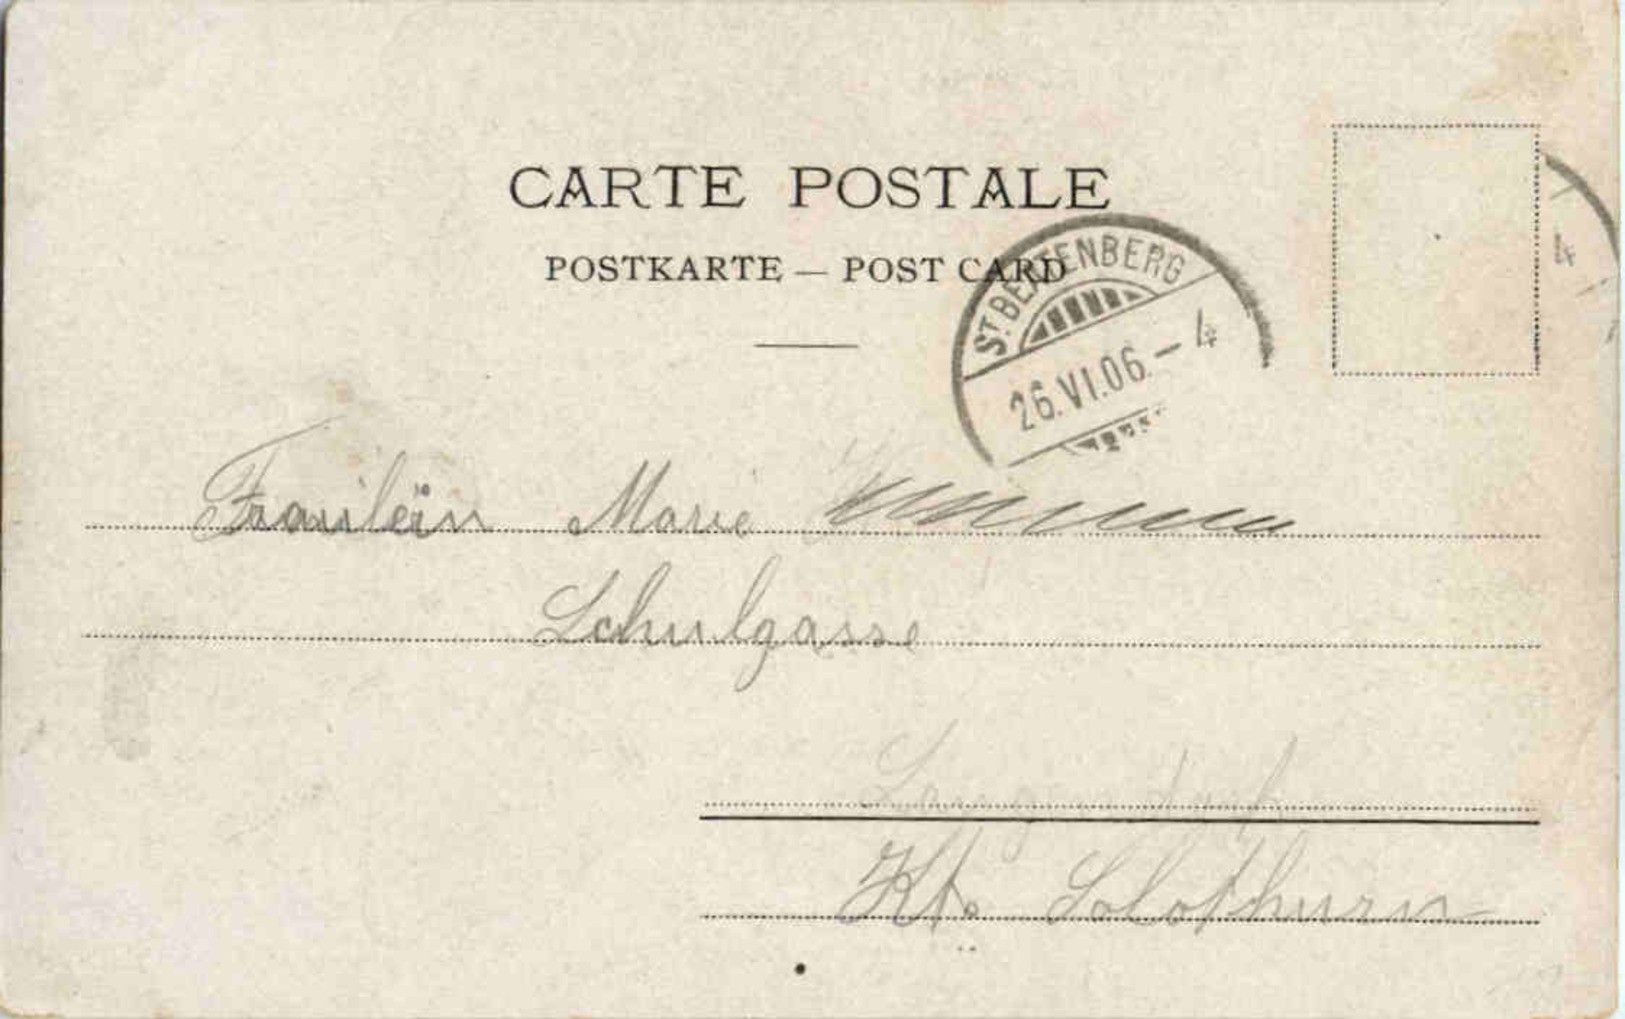 CARTE POSTALE
POSTKARTE — POST CARD
ST. BEATENBERG
26.VI.06.–4
4
Fräulein Marie
Schulgasse
Langendorf
Kt. Solothurn